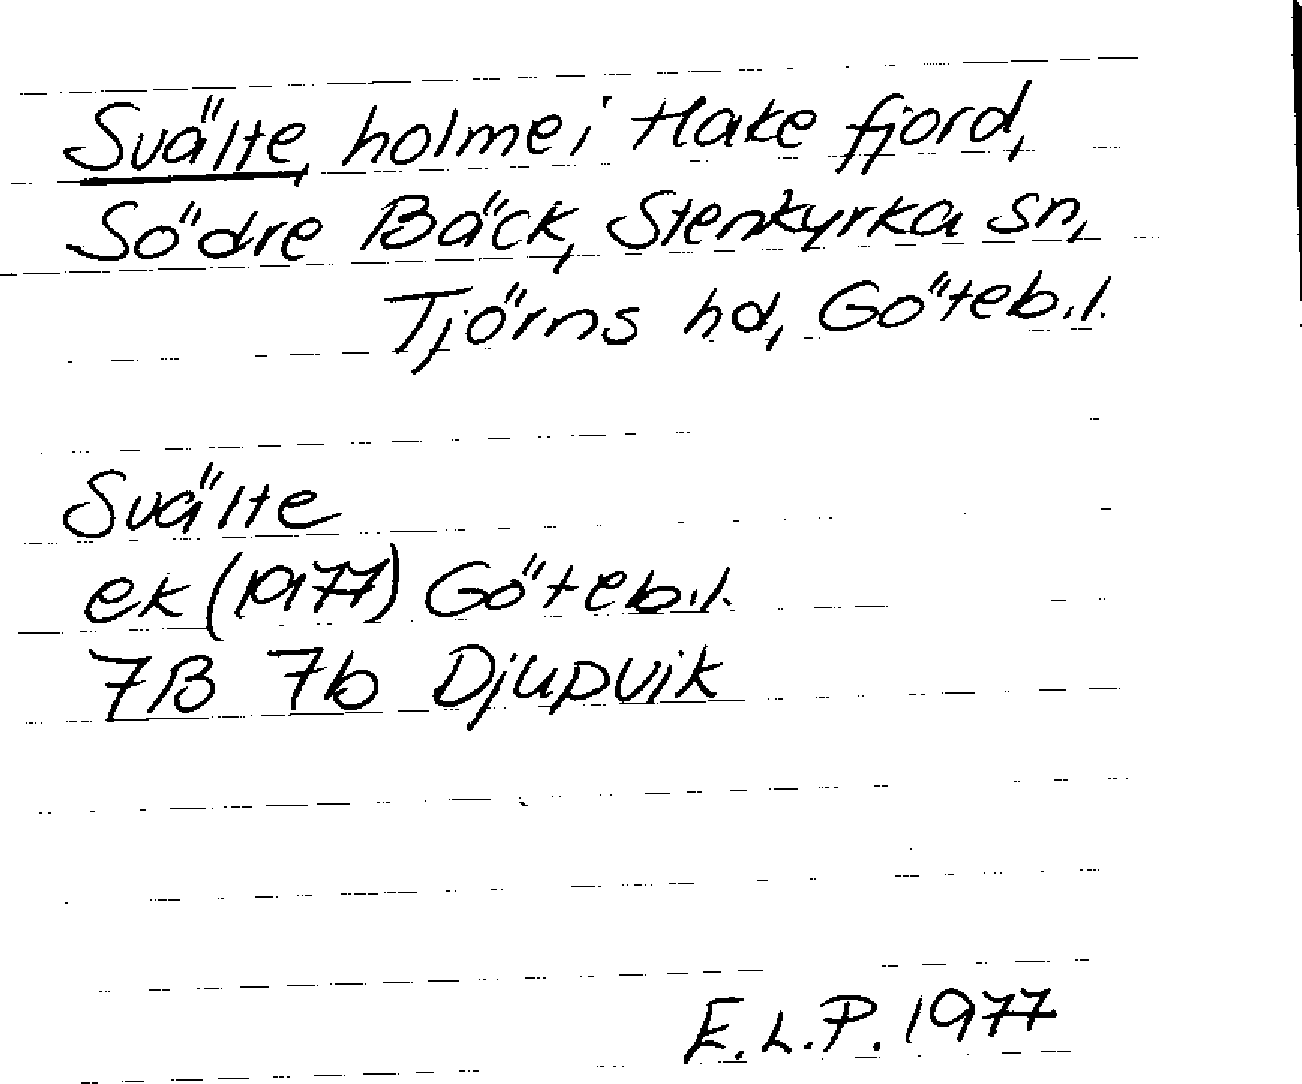 Svälte, holme i Hake fjord,
Södre Bäck, Stenkyrka sn,
Tjörns hd, Göteb.l.
Svälte
ek (1977) Göteb.l.
7B 7b Djupvik
E.L.P. 1977